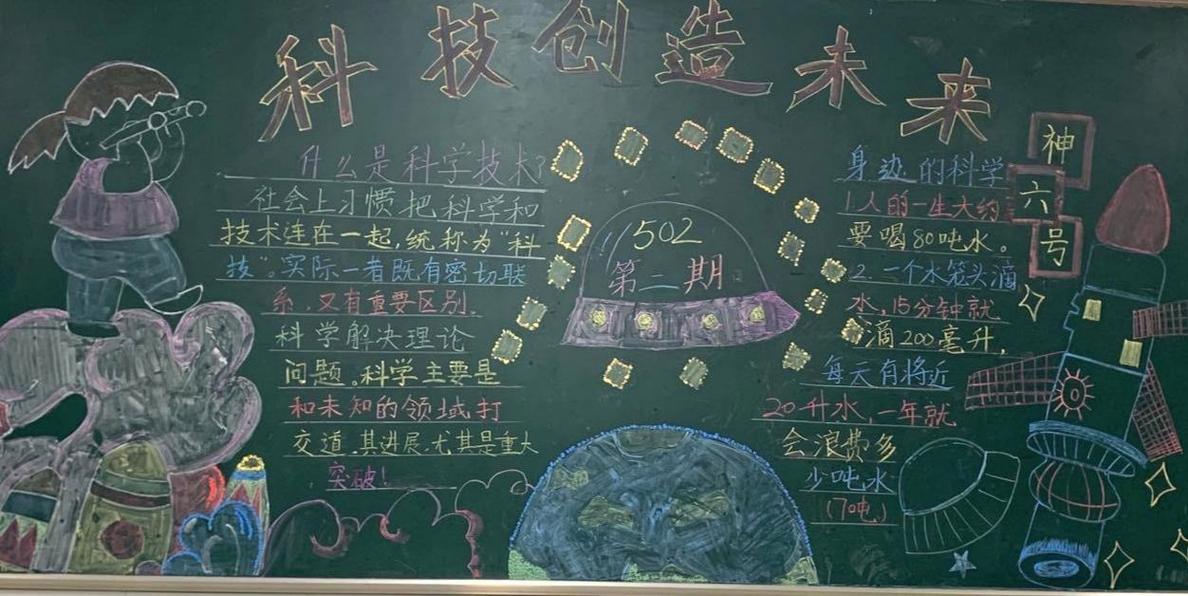 科技创造未来
什么是科学技术?
社会上习惯把科学和
技术连在一起,统称为“科
技”。实际二者既有密切联
系,又有重要区别。
科学解决理论
问题。科学主要是
和未知的领域打
交道,其进展,尤其是重大
突破!
502
第二期
身边的科学
1人的一生大约
要喝80吨水。
2.一个水笼头滴
水,15分钟就
滴200毫升,
每天有将近
20升水,一年就
会浪费多
少吨水
(7吨)
神
六
号